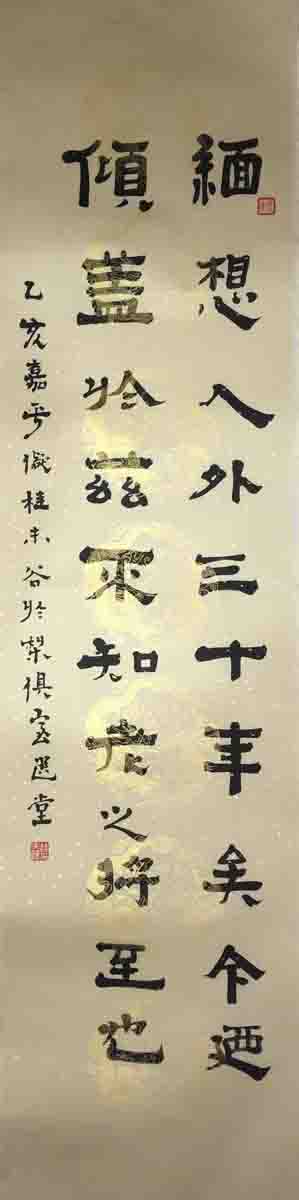 緬想人外三十年矣今迺
傾蓋於茲不知老之將至也
乙亥嘉平倣桂未谷於棃俱室選堂